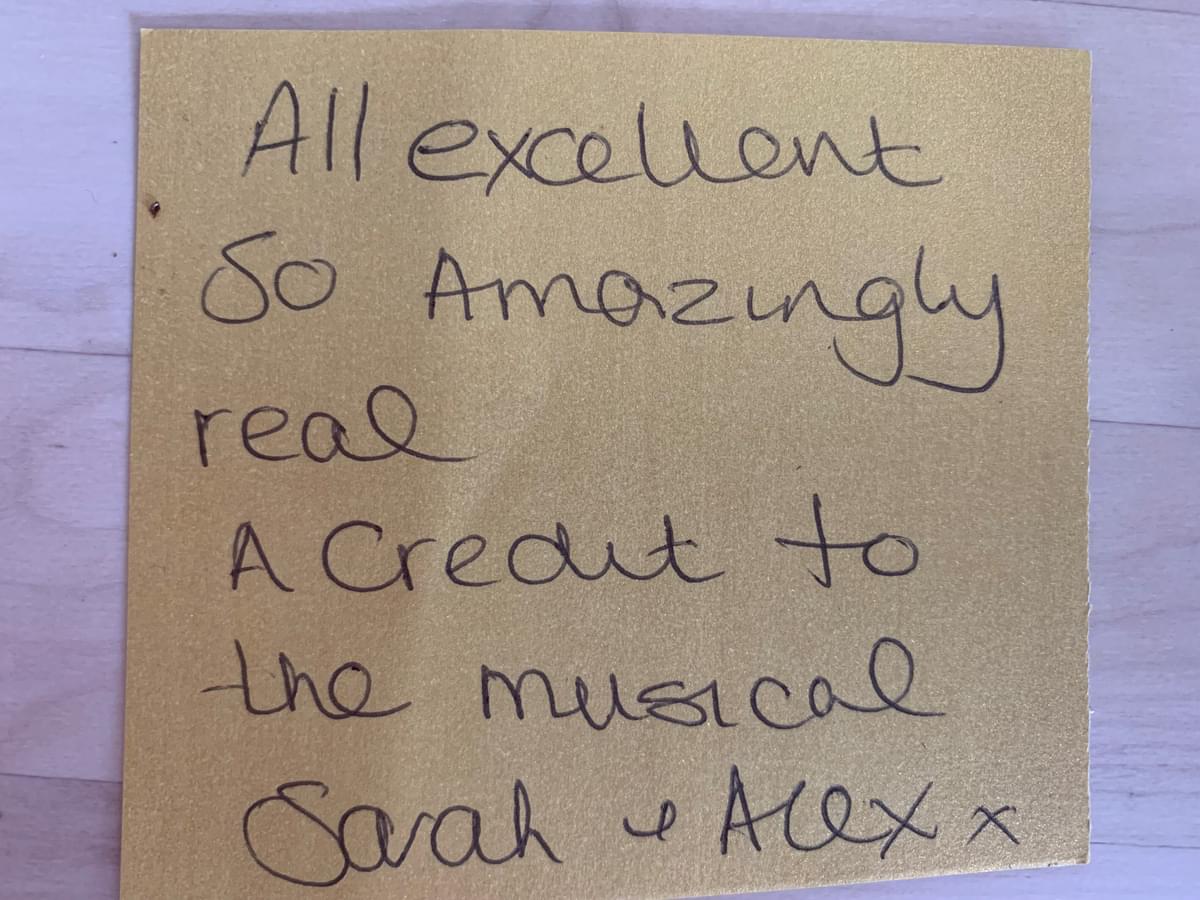 All excellent
So Amazingly
real
A Credit to
the musical
Sarah & Alex x